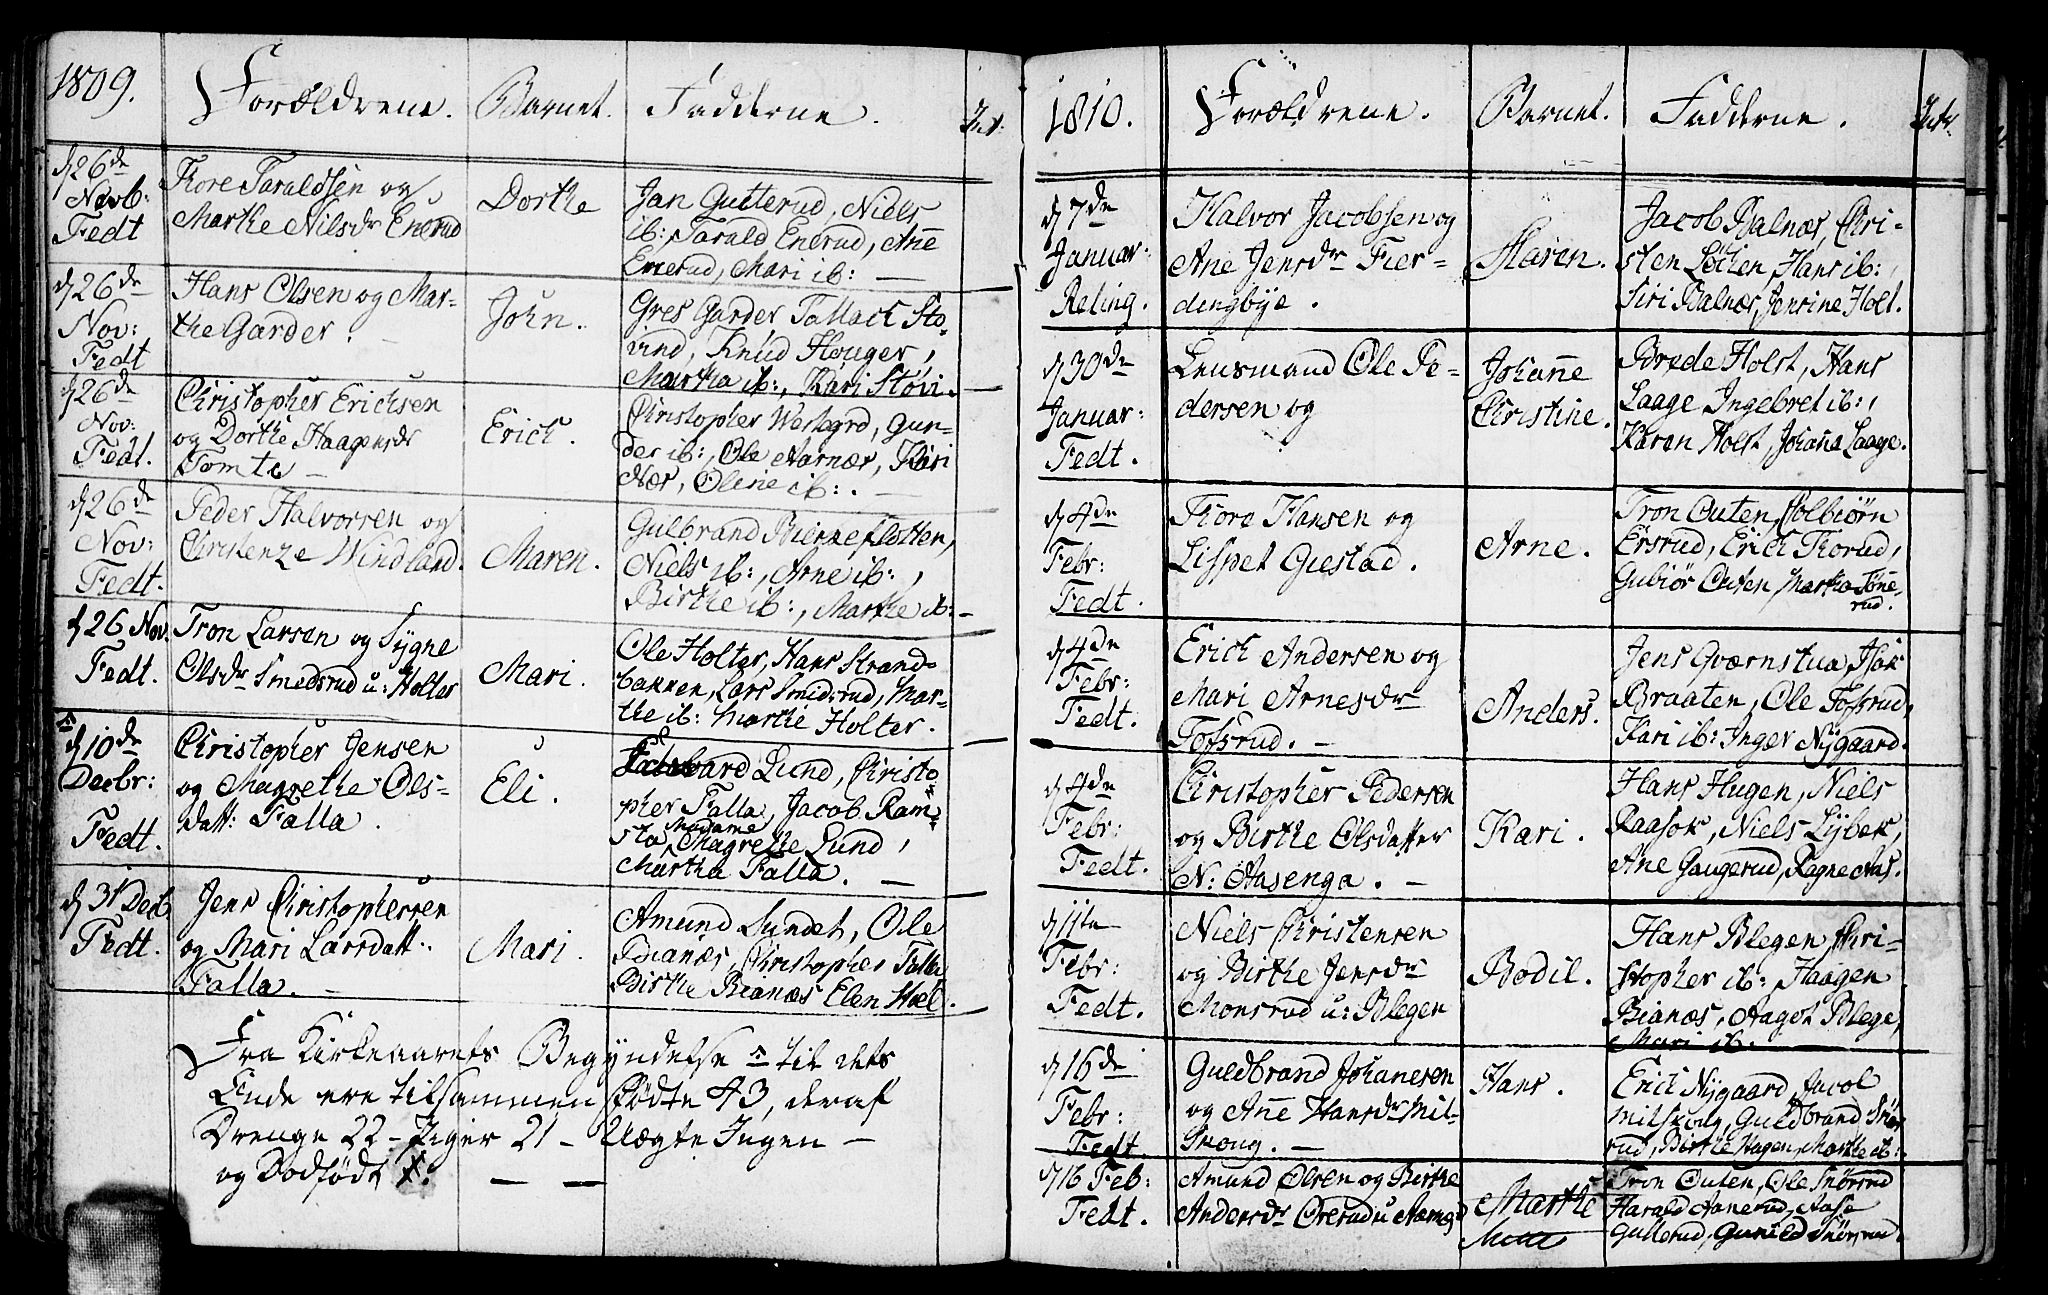 1809.
Forældrene. Barnet. Fadderne. Int.
d 26de
Novb:
Fedt
Thore Taraldsen og
Marthe Nilsdr Enerud
Dorthe
Jan Gutterud, Niels
ib: Tarald Enerud, Ane
Enerud, Mari ib: —
d 26de
Nov:
Fedt
Hans Olsen og Mar-
the Garder.
John.
Gres Garder Tallach Sto-
vind, Knud Houger,
Martha ib:, Kari Støvi.
d 26de
Nov:
Fedt.
Christopher Erichsen
og Dorthe Haagensdr
Tomte —
Erich.
Christopher Westgrd, Gun-
der ib:, Ole Aarnær, Kari
Nær, Oline ib:. —
d 26de
Nov:
Fedt.
Peder Halvorsen og
Christenze Windland.
Maren.
Gulbrand Bierkeflotten,
Niels ib:, Arne ib:,
Birthe ib:, Marthe ib: —
d 26 Nov.
Fedt.
Tron Larsen og Sygne
Olsdr Smedsrud u: Holter
Mari.
Ole Holter, Hans Strand-
bakken, Lars Smidsrud, Mar-
the ib: Marthe Holter.
d 10de
Decbr:
Fedt.
Christopher Jensen
og Magrethe Ols-
datt: Falla.
Eli.
Lund, Christo
pher Falla, Jacob Ram-
sta, Madame Magrethe Lund,
Martha Falla. —
d 31 Decb
Fedt.
Jens Christophersen
og Mari Larsdatt:
Falla. —
Mari.
Amund Sundet, Ole
Bianæs, Christopher Falla
Birthe Bianæs Elen Hoel.
Fra Kirkeaarets Begyndelse til dets
Ende ere tilsammen fødte 43, deraf
Drenge 22 - Piger 21 - Uægte Ingen —
og Dødfødt 1. — —
1810.
Forældrene. Barnet. Fadderne. Intr.
d 7de
Januar:
Reling.
Halvor Jacobsen og
Ane Jensdr Fier-
dingbye.
Karen.
Jacob Balnæs, Chri-
sten Løken, Hans ib:,
Siri Balnæs, Jensine Holt.
d 30de
Januar:
Fedt.
Lensmand Ole Pe-
dersen og
Johanne
Christine.
Brede Holst, Hans
Laage Ingebret ib:,
Karen Holst, Johana Laage.
d 4de
Febr:
Fedt.
Thore Hansen og
Lispet Giestad.
Arne.
Tron Outen, Colbiørn
Ersrud, Erich Thorud,
Gubiør Outen Martha Tøne-
rud.
d 4de
Febr:
Fedt.
Erich Andersen og
Mari Arnesdr
Tofsrud. —
Anders.
Jens Qværnstua, Isak
Braaten, Ole Tofsrud,
Kari ib: Inger Nygaard.
d 4de
Febr:
Fedt.
Christopher Pedersen
og Birthe Olsdatter
N: Aasenga. —
Kari.
Hans Hugen, Niels
Raasok, Niels Lybek,
Ane Gaugerud, Ragne Aas.
d 11te
Febr:
Fedt.
Niels Christensen
og Birthe Jensdr
Monsrud u: Blegen
Bodil.
Hans Blegen Chri-
stopher ib: Haagen
Bianæs, Aagot Blege,
Mari ib: —
d 16de
Febr:
Fedt.
Guldbrand Johanesen
og Ane Hansdr Mil-
skoug. —
Hans.
Erich Nygaard, Jacob
Milskoug, Guldbrand Snør
rud, Birthe Hagen, Marthe ib:
d 16 Feb:
Fedt.
Amund Olsen og Birthe
Andersdr Ovrerud u
Marthe
Tron Outen, Ole Snørrud
Harald Aanerud, Aase
Gullerud, Gunild Snørrud.